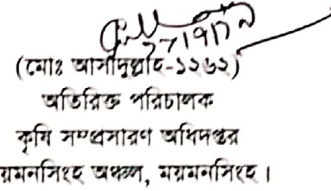 (মোঃ আসাদুল্লাহ-১২৬২)
অতিরিক্ত পরিচালক
কৃষি সম্প্রসারণ অধিদপ্তর
ময়মনসিংহ অঞ্চল, ময়মনসিংহ।